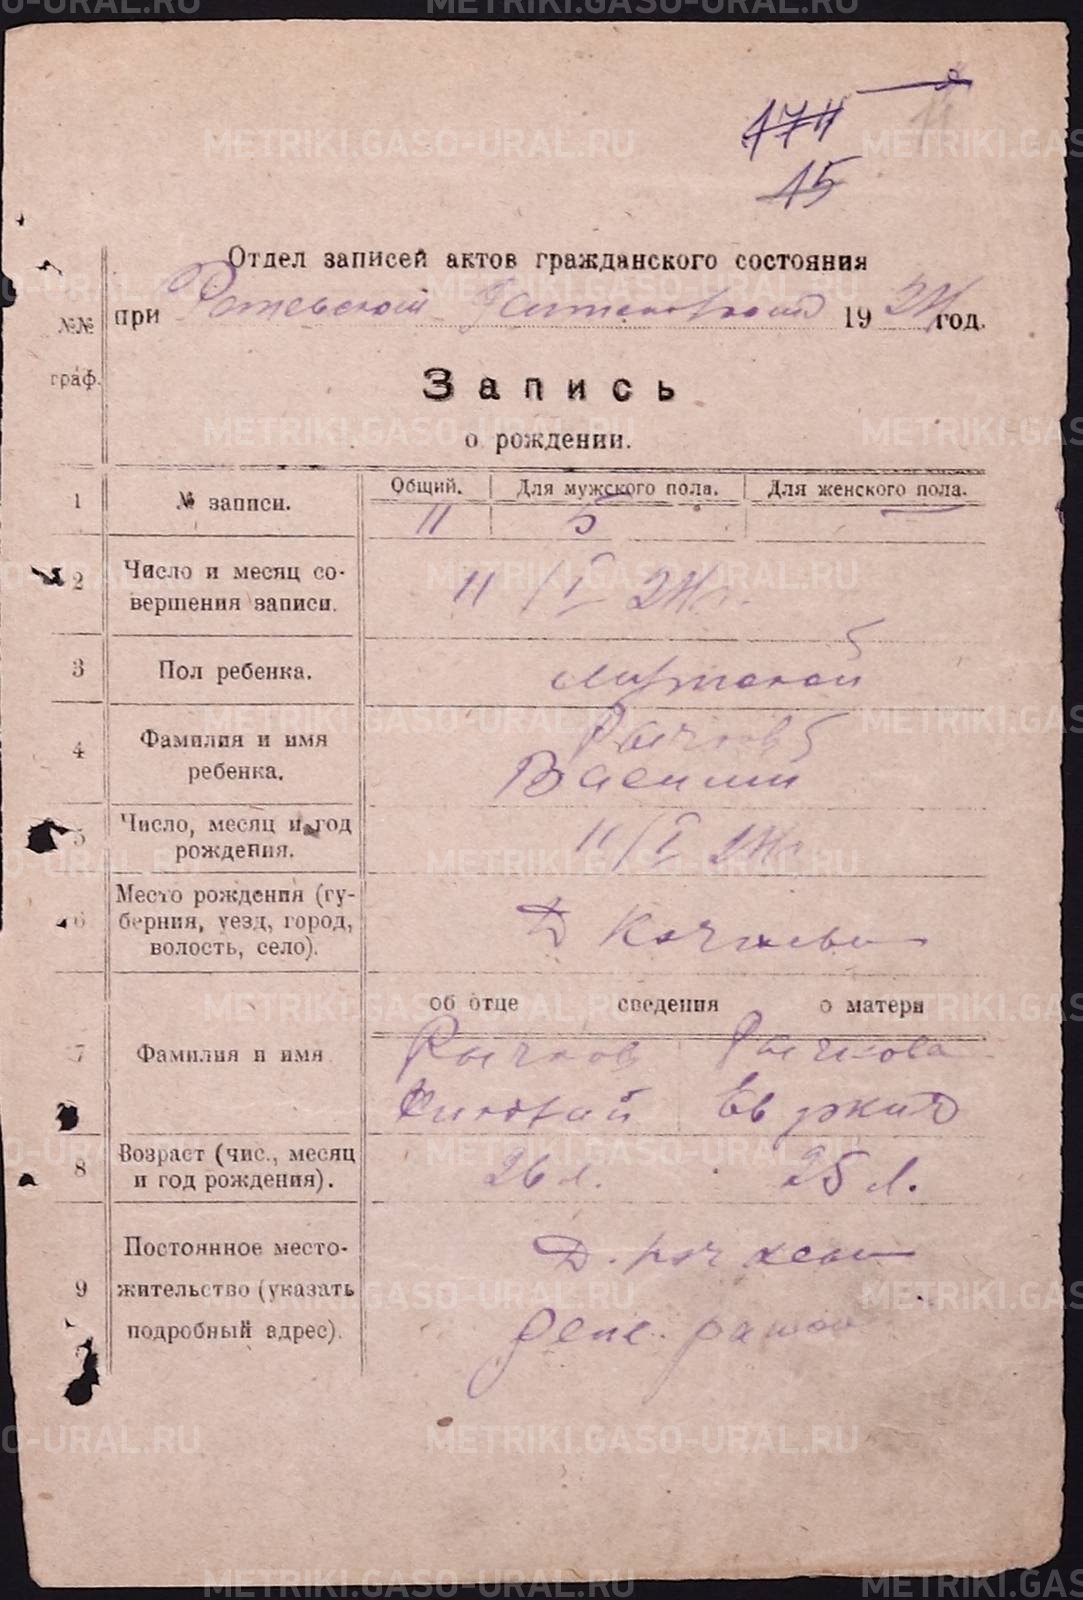 174
15
Отдел записей актов гражданского состояния
при 1924 год.
№№ граф.
Запись
о рождении.
Общий. Для мужского пола. Для женского пола.
1 № записи. 11 5 —
2 Число и месяц со-
вершения записи. 11/I 24 г.
3 Пол ребенка. мужской
4 Фамилия и имя
ребенка. Рычков
Василий
5 Число, месяц и год
рождения. 11/I 24 г.
6 Место рождения (гу-
берния, уезд, город,
волость, село). Д
об отце сведения о матери
7 Фамилия и имя Рычков Рычкова
8 Возраст (чис., месяц
и год рождения). 26 л. 25 л.
9 Постоянное место-
жительство (указать
подробный адрес). Д.
METRIKI.GASO-URAL.RU